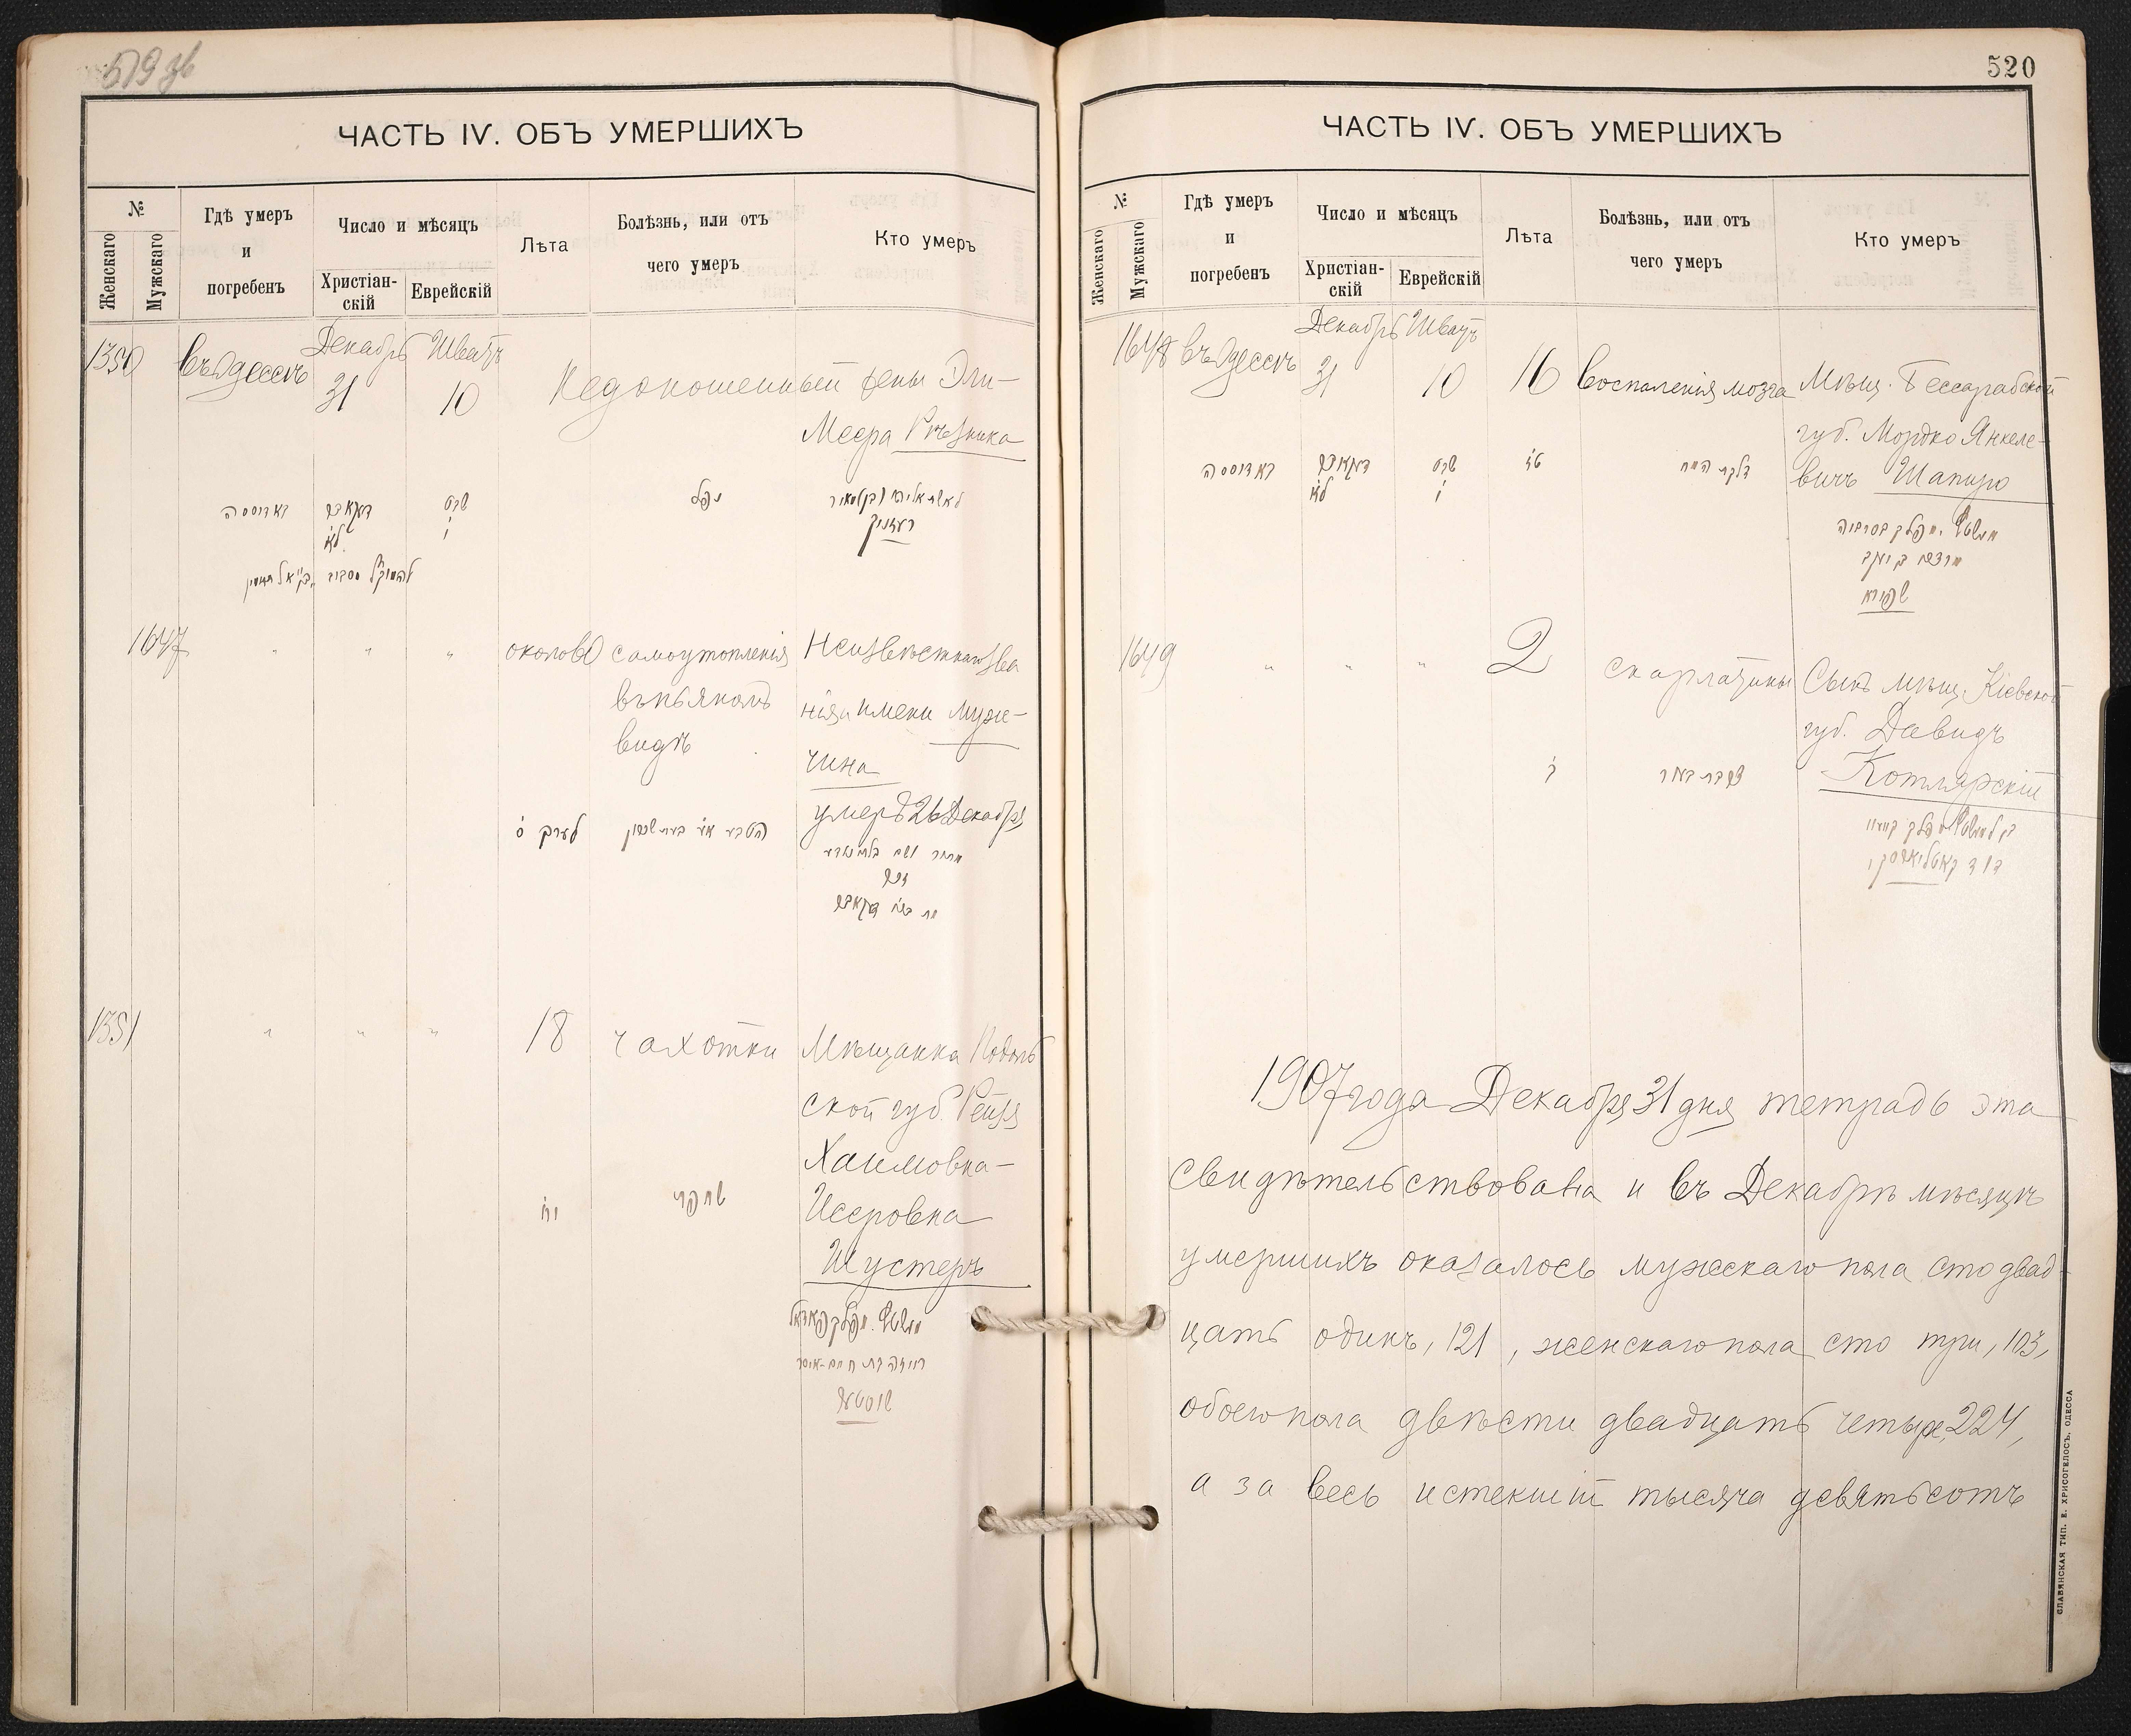 519 об
ЧАСТЬ IV. ОБЪ УМЕРШИХЪ
№
Женскаго
Мужскаго
Гдѣ умеръ
и
погребенъ
Число и мѣсяцъ
Христіан-
скій
Еврейскій
Лѣта
Болѣзнь, или отъ
чего умеръ
Кто умеръ
1350 въ Одессѣ Декабрь 31 Шватъ 10 Недоношенный жены Эли-
Меера Рѣзника
באדוססה דעקאבר שבט נפל
לא י
רעזניק
1647 " " " около 60 самоутопленія Неизвѣстнаго зва
въ пьяномъ нія и имени муж-
видѣ чина
умеръ 26 Декабря
לערך ס
דעקאבר
1351 " " " 18 чахотки Мѣщанка Подоль
ской губ. Рейзя
Хаимовна-
Иссровна
Шустеръ
יח שחפת
רייזה בת חיים-איסר
שוסטער
520
ЧАСТЬ IV. ОБЪ УМЕРШИХЪ
№
Женскаго
Мужскаго
Гдѣ умеръ
и
погребенъ
Число и мѣсяцъ
Христіан-
скій
Еврейскій
Лѣта
Болѣзнь, или отъ
чего умеръ
Кто умеръ
1648 въ Одессѣ Декабрь 31 Шватъ 10 16 воспаленія мозга Мѣщ. Бессарабской
губ. Мордко Янкеле-
вичъ Шапиро
באדוססה דעקאבר שבט טז דלקת המח
לא י
שפירא
1649 " " " 2 скарлатины Сынъ мѣщ. Кіевской
губ. Давидъ
Котлярскій
ב
דוד קאטליארסקי
1907 года Декабря 31 дня тетрадь эта
свидѣтельствована и въ Декабрѣ мѣсяцѣ
умершихъ оказалось мужескаго пола сто двад-
цать одинъ, 121, женскаго пола сто три, 103,
обоего пола двѣсти двадцать четыре, 224,
а за весь истекшій тысяча девятьсотъ
СЛАВЯНСКАЯ ТИП. Е. ХРИСОГЕЛОСЪ. ОДЕССА